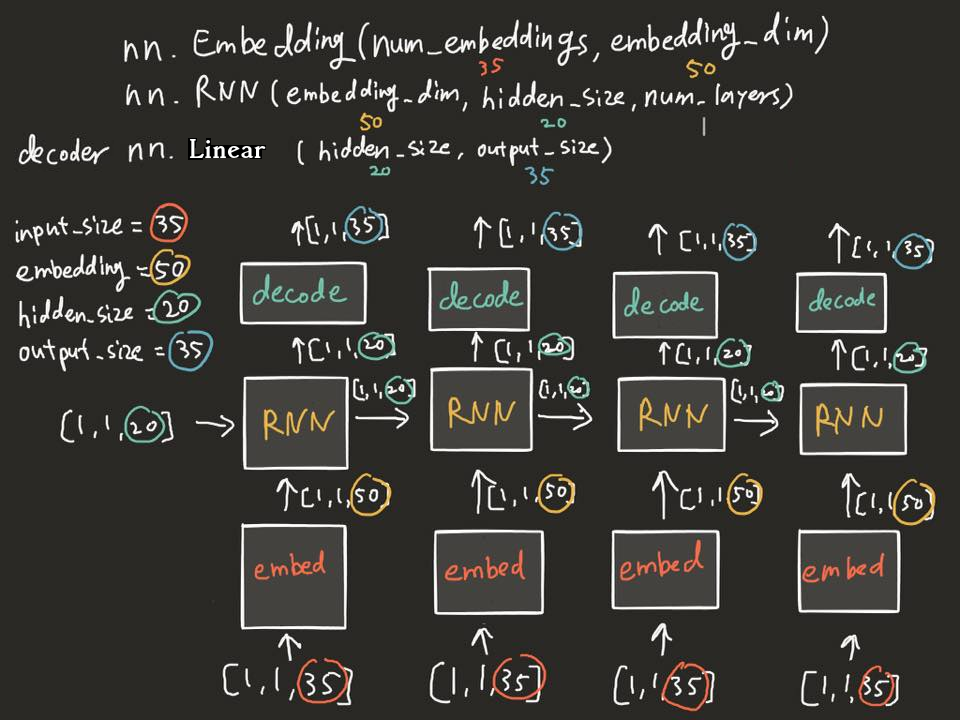 nn. Embedding (num_embeddings, embedding_dim)
35 50
nn. RNN (embedding_dim, hidden_size, num_layers)
50 20 1
decoder nn. Linear (hidden_size, output_size)
20 35
input_size = 35
embedding = 50
hidden_size = 20
output_size = 35
[1,1,35] [1,1,35] [1,1,35] [1,1,35]
decode decode decode decode
[1,1,20] [1,1,20] [1,1,20] [1,1,20]
[1,1,20] [1,1,20] [1,1,20]
[1,1,20] RNN RNN RNN RNN
[1,1,50] [1,1,50] [1,1,50] [1,1,50]
embed embed embed embed
[1,1,35] [1,1,35] [1,1,35] [1,1,35]